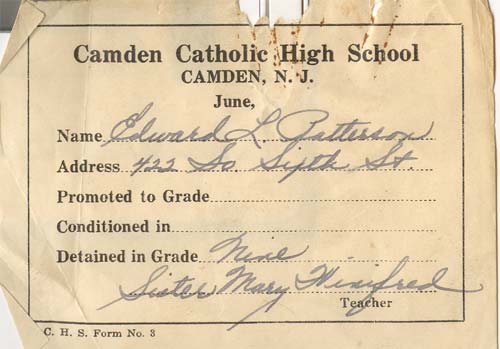 Camden Catholic High School
CAMDEN, N. J.
June,
Name Edward L Patterson
Address 422 So Sixth St.
Promoted to Grade
Conditioned in
Detained in Grade Nine
Sister Mary Winifred
Teacher
C. H. S. Form No. 3